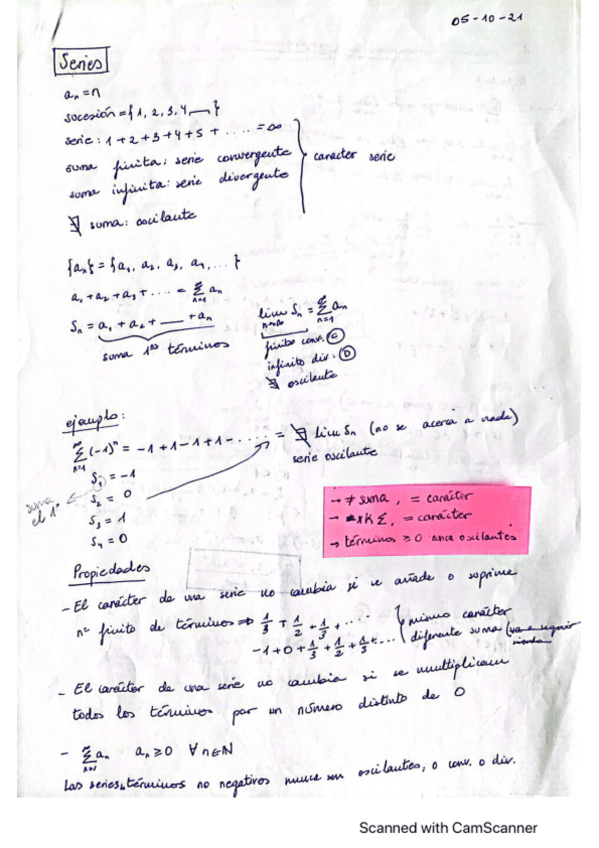 05-10-21
Series
aₙ = n
sucesión = {1, 2, 3, 4, __ }
serie: 1+2+3+4+5+ ..... = ∞
suma finita: serie convergente
suma infinita: serie divergente
∄ suma: oscilante
caracter serie
{aₙ} = {a₁, a₂, a₃, a₄, ... }
a₁+a₂+a₃+ ..... = ∑ₙ₌₁^∞ aₙ
Sₙ = a₁ + a₂ + __ + aₙ
suma 1ᵒˢ términos
lim Sₙ = ∑ₙ₌₁^∞ aₙ
n→∞
finito conv. Ⓒ
infinito div. Ⓓ
∄ oscilante
ejemplo:
∑ₙ₌₁^∞ (-1)ⁿ = -1+1-1+1- ..... = ∄ lim Sₙ (no se acerca a nada)
serie oscilante
S₁ = -1
S₂ = 0
S₄ = 0
suma el 1º
→ ≠ suma, = carácter
→ xK Σ, = carácter
→ términos ≥0 nunca oscilantes
Propiedades
- El carácter de una serie no cambia si se añade o suprime
nº finito de términos ⇒ 1/3 + 1/2 + 1/3 + ....
-1+0+1/3+1/2+1/3+...
mismo carácter
diferente suma
- El carácter de una serie no cambia si se multiplican
todos los términos por un número distinto de 0
- ∑ₙ₌₁^∞ aₙ aₙ ≥ 0 ∀ n∈N
Las series términos no negativos nunca son oscilantes, o conv. o div.
Scanned with CamScanner